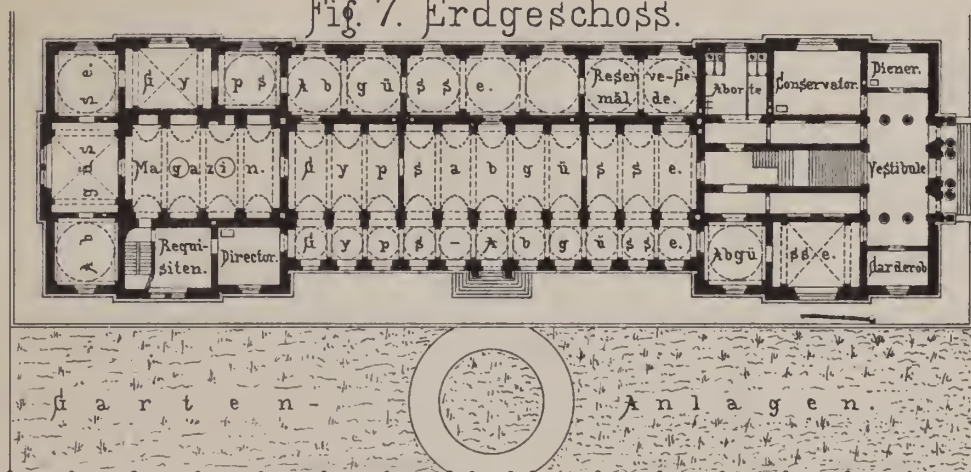 Fig. 7. Erdgeschoss.
Gyps Abgüsse.
Reserve-Gemälde.
Aborte
Conservator.
Diener.
Abgüsse.
Magazin.
Gypsabgüsse.
Vestibule
Requi-
siten.
Director.
Gyps-Abgüsse.
Abgüsse.
Garderob
Garten-Anlagen.